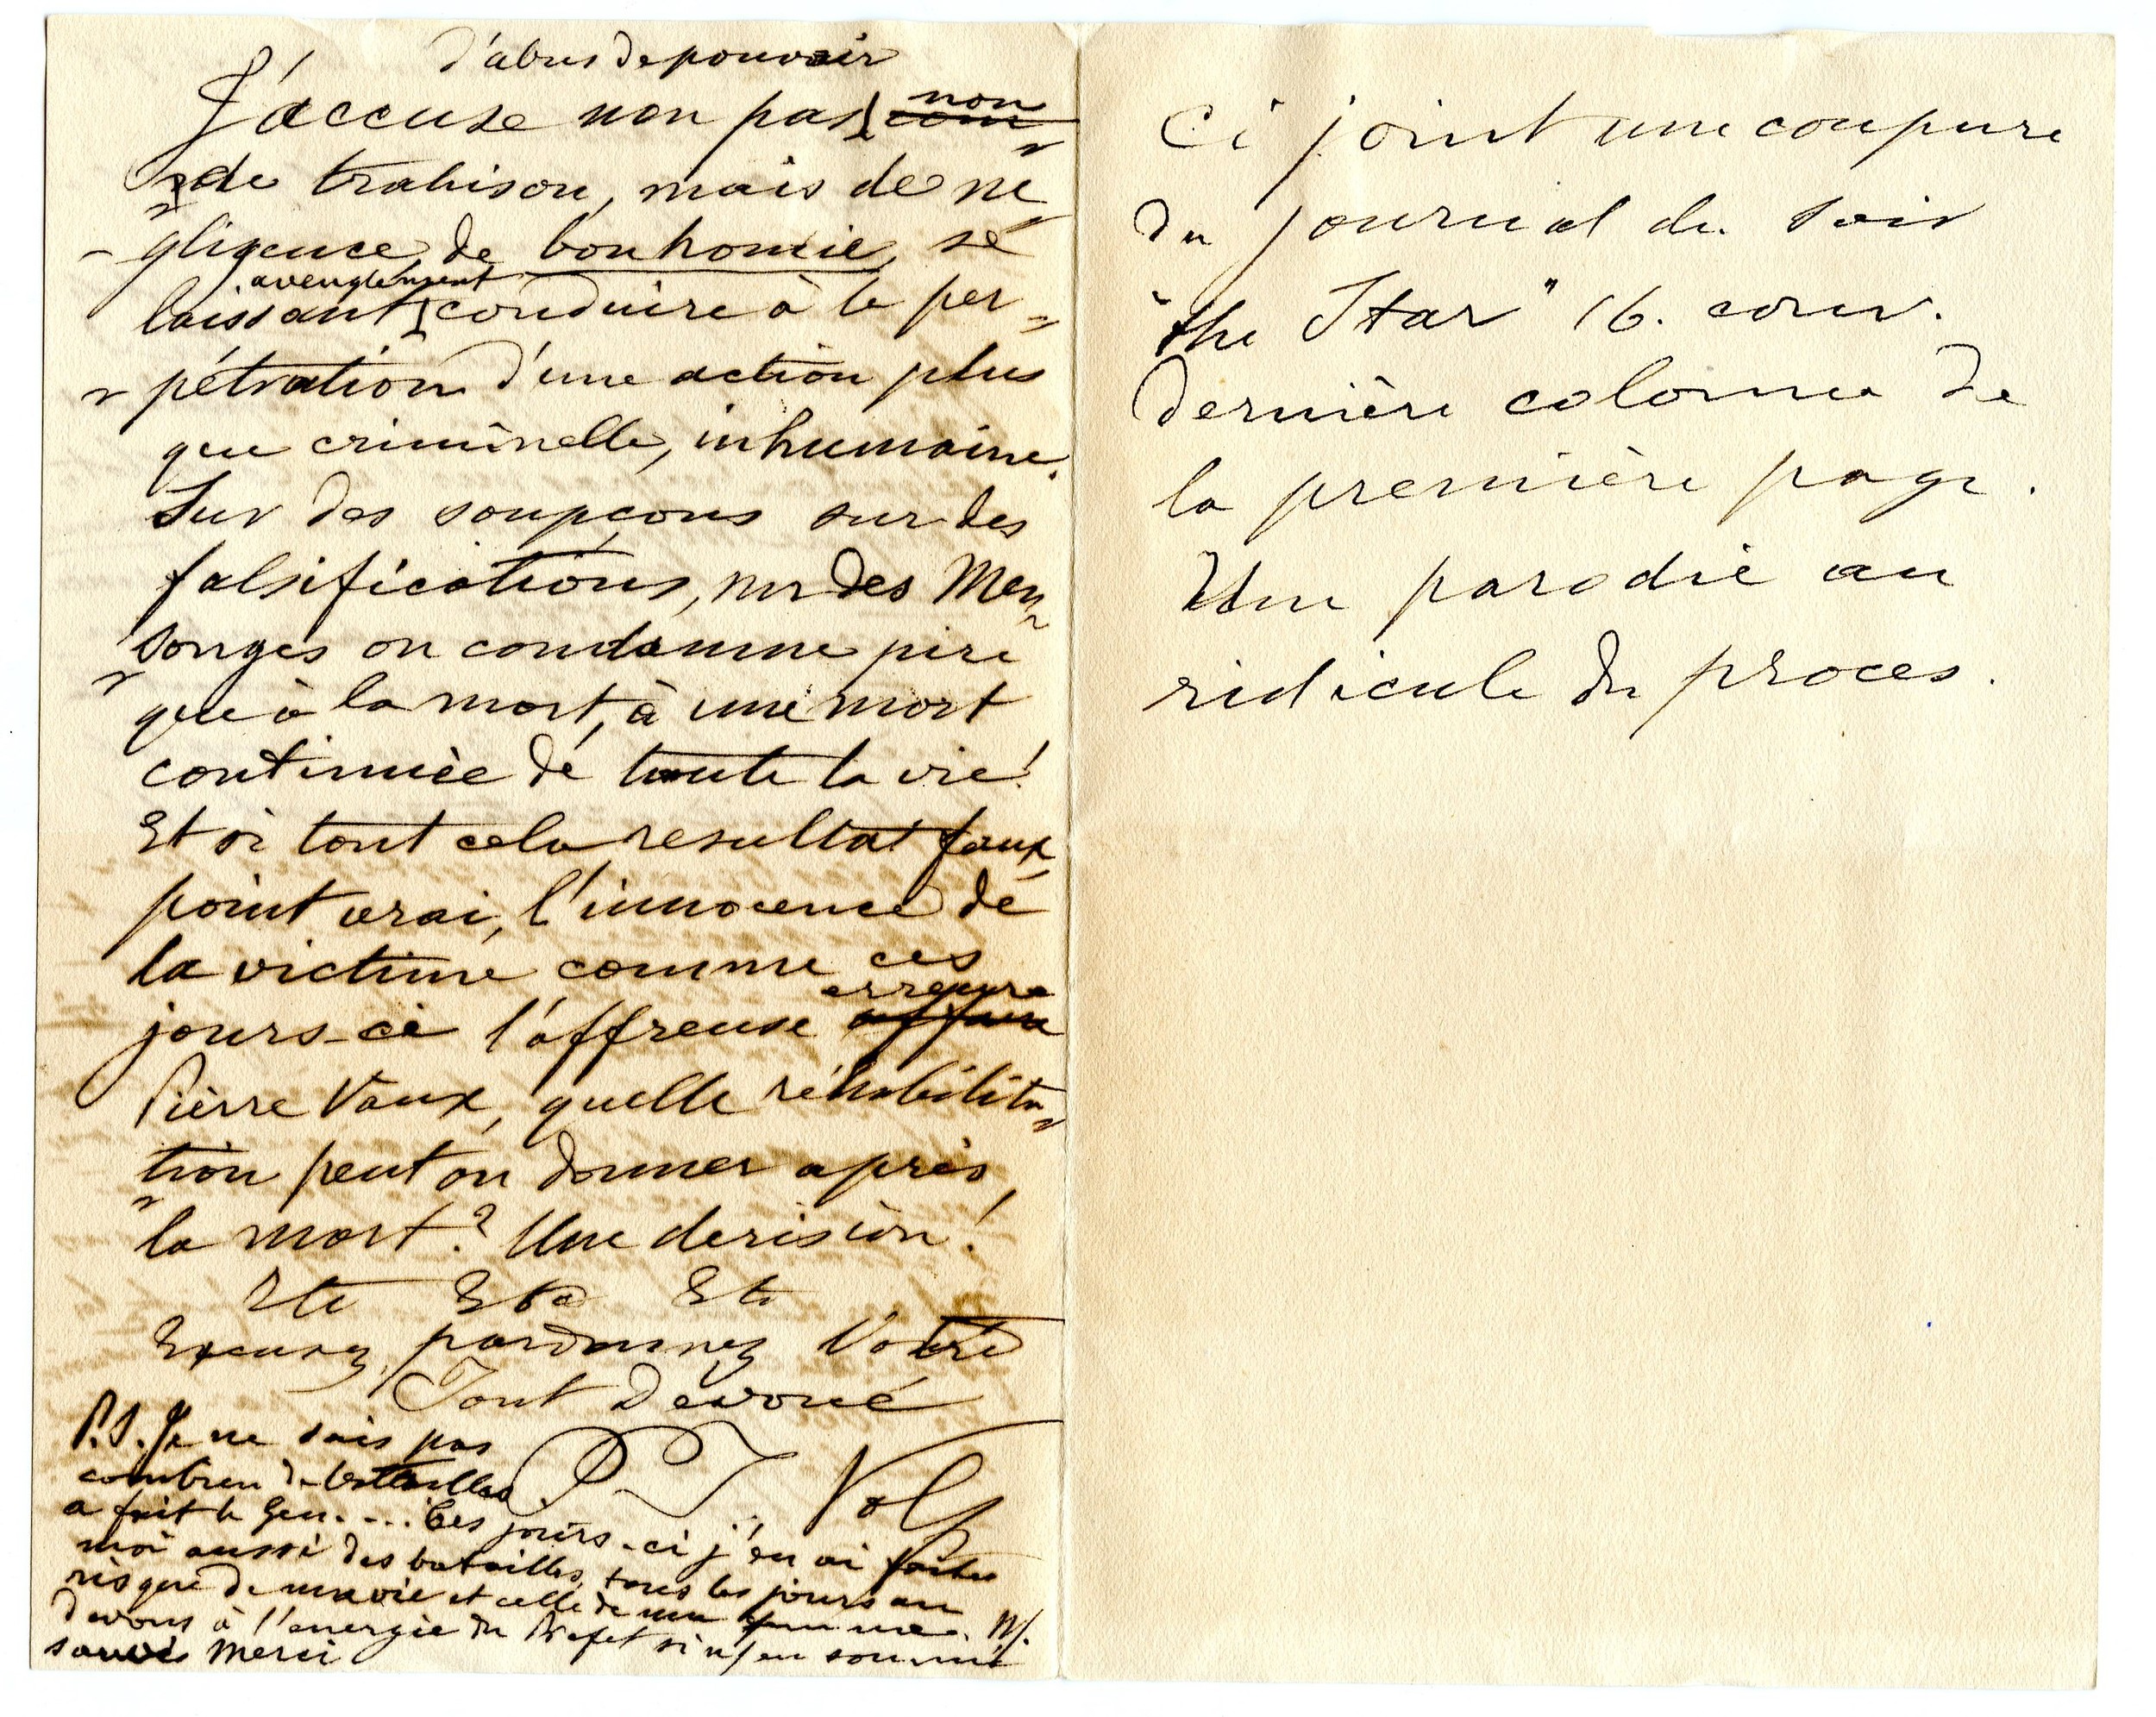 d'abus de pouvoir
J'accuse non pas non
de trahison, mais de né
gligence, de bonhomie, se
aveuglement
laissant conduire à la per
pétration d'une action plus
que criminelle, inhumaine.
Sur des soupçons sur des
falsifications, sur des Men
songes on condamne pire
que à la mort, à une mort
continuée de toute la vie!
Et si tout cela resultat faux,
point vrai, l'innocence de
la victime comme ces
erreure
jours-ci l'affreuse affaire
Pierre Vaux, quelle réhabilita
tion peut on donner après
la mort? Une derision!
Etc Etc Etc
Excusez, pardonnez Votre
Tout Devoué
P.S. Je ne sais pas
combien de batailles
a fait le Gen.... Ces jours-ci j'en ai faites
moi aussi des batailles, tous les jours au
risque de ma vie et celle de ma femme. N/.
devons à l'energie du Prefet si n/ en sommes
sauvés Merci
Ci joint une coupure
du journal du soir
"the Star" 16. cour.
dernière colonne de
la première page.
Une parodie au
ridicule du proces.